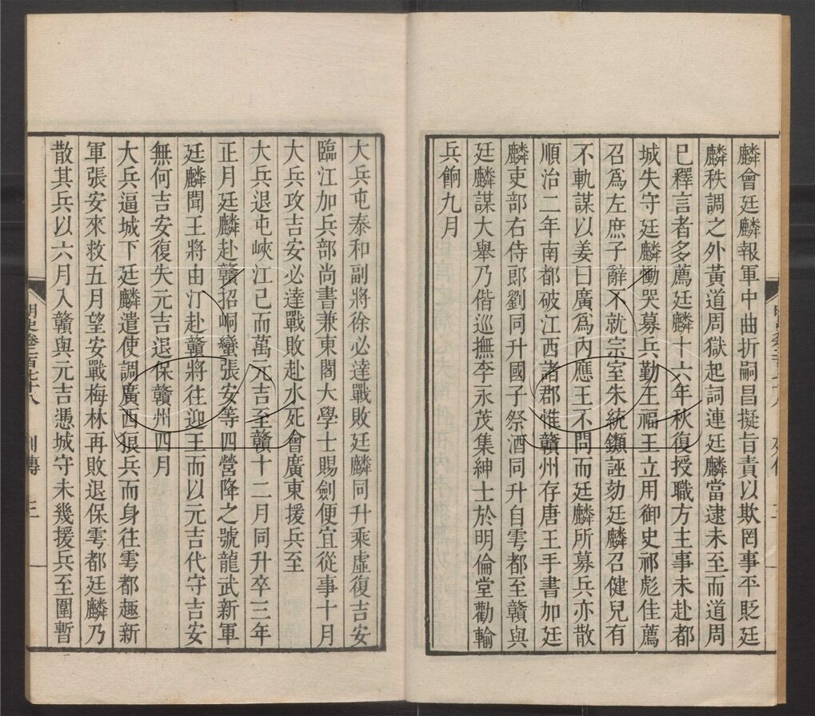 麟會廷麟報軍中曲折嗣昌擬旨責以欺罔事平貶廷
麟秩調之外黃道周獄起詞連廷麟當逮未至而道周
已釋言者多薦廷麟十六年秋復授職方主事未赴都
城失守廷麟慟哭募兵勤王福王立用御史祁彪佳薦
召爲左庶子辭不就宗室朱統𨰥誣劾廷麟召健兒有
不軌謀以姜曰廣爲內應王不問而廷麟所募兵亦散
順治二年南都破江西諸郡惟贛州存唐王手書加廷
麟吏部右侍郎劉同升國子祭酒同升自雩都至贛與
廷麟謀大舉乃偕巡撫李永茂集紳士於明倫堂勸輸
兵餉九月
明史卷二百七十八 列傳 二
大兵屯泰和副將徐必達戰敗廷麟同升乘虛復吉安
臨江加兵部尚書兼東閣大學士賜劍便宜從事十月
大兵攻吉安必達戰敗赴水死會廣東援兵至
大兵退屯峽江已而萬元吉至贛十二月同升卒三年
正月廷麟赴贛招峒蠻張安等四營降之號龍武新軍
廷麟聞王將由汀赴贛將往迎王而以元吉代守吉安
無何吉安復失元吉退保贛州四月
大兵逼城下廷麟遣使調廣西狼兵而身往雩都趣新
軍張安來救五月望安戰梅林再敗退保雩都廷麟乃
散其兵以六月入贛與元吉憑城守未幾援兵至圍暫
明史卷二百七十八 列傳 三